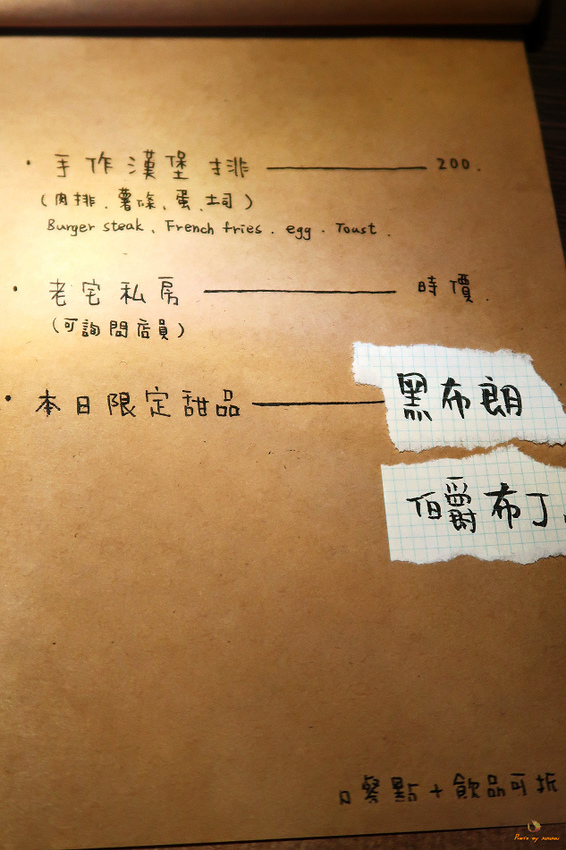 · 手作漢堡排 —— 200.
(肉排、薯條、蛋、土司)
Burger steak、French fries . egg . Toast .
· 老宅私房 —— 時價.
(可詢問店員)
· 本日限定甜品 —— 黑布朗
伯爵布丁
餐點+飲品可折